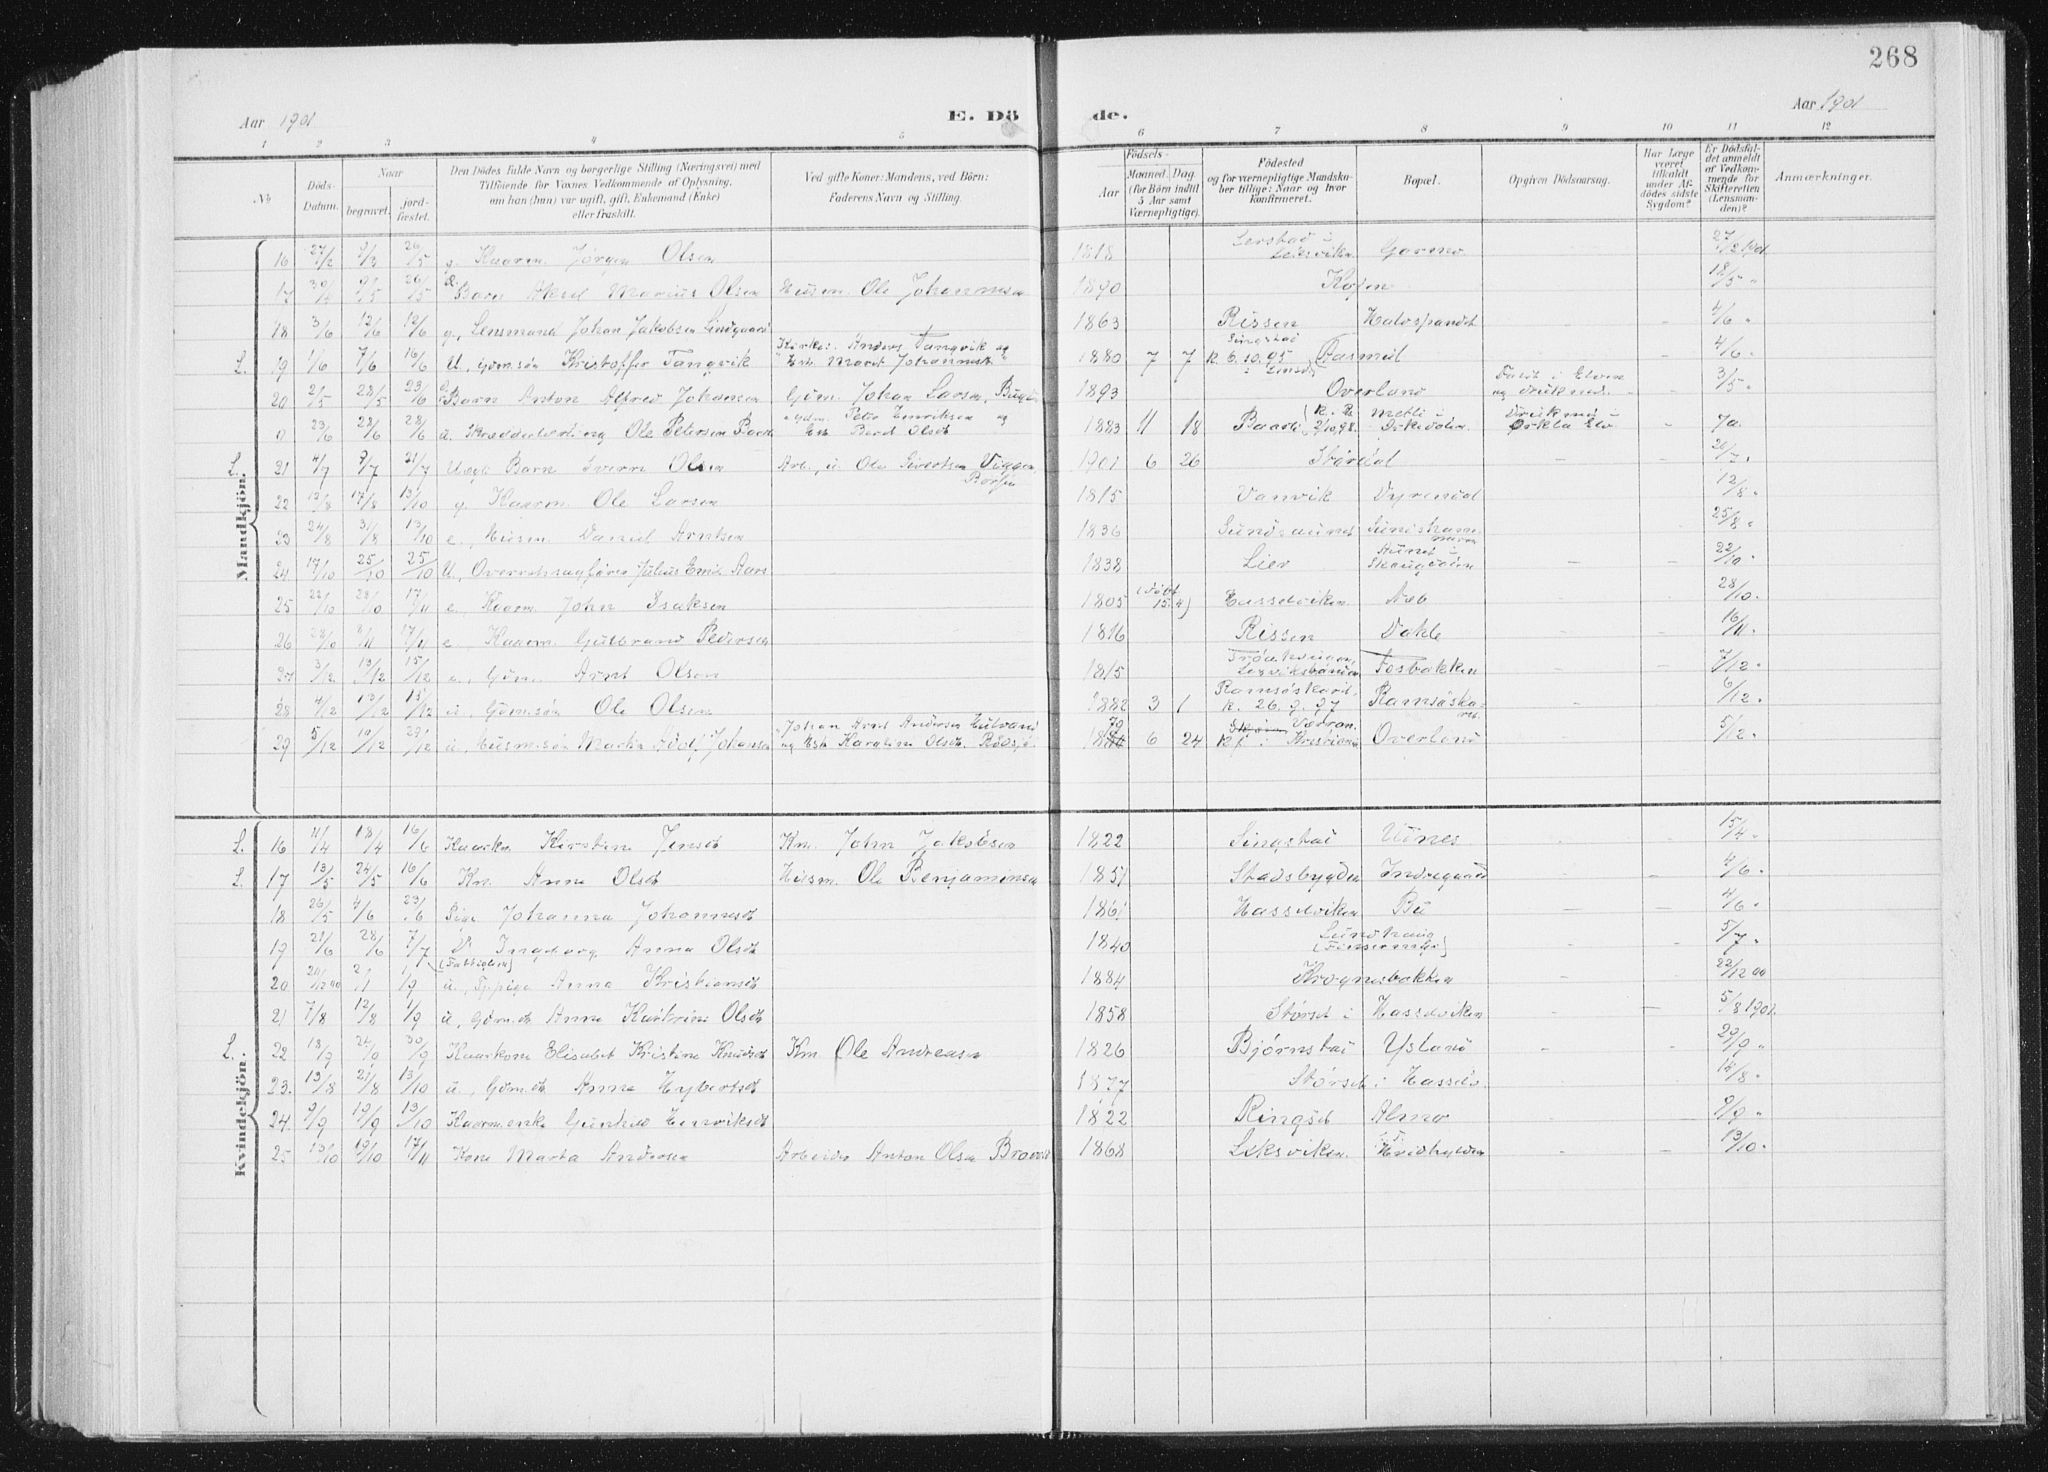 268
Aar 1901 E. Dö de. Aar 1901
1 2 3 4 5 6 7 8 9 10 11 12
No Döds-Datum. Naar begravet. jordfæstet. Den Dödes fulde Navn og borgerlige Stilling (Næringsvei) med Tilföiende for Voxnes Vedkommende af Oplysning, om han (hun) var ugift, gift, Enkemand (Enke) eller fraskilt. Ved gifte Koner: Mandens, ved Börn: Faderens Navn og Stilling. Födsels- Aar Maaned. Dag. (for Börn indtil 5 Aar samt Værnepligtige). Födested og for værnepligtige Mandskaber tillige: Naar og hvor Konfirmeret. Bopæl. Opgiven Dödsaarsag. Har Læge været tilkaldt under Afdödes sidste Sygdom? Er Dödsfaldet anmeldt af Vedkommende for Skifteretten (Lensmanden)? Anmærkninger.
Mandkjön.
16 27/2 9/3 26/5 g. Kaarm. Jørgen Olsen 1818 Leksviken Gormo 27/2 1901
17 30/4 9/5 26/5 Barn Aksel Marius Olsen Husm. Ole Johannesen 1890 18/5 "
18 3/6 12/6 12/6 g., Lensmand Johan Jakobsen Lindgaard 1863 Rissen - - 4/6 "
L. 19 1/6 7/6 16/6 U., Gdm.søn Kristoffer Tangvik Kirkes. Anders Tangvik og Marit Johannesd. 1880 7 7 Singstad K. 6.10.95 Fasmel 4/6 "
20 21/5 28/5 23/6 Barn Anton Alfred Johansen Gdm. Johan Larsen, 1893 Overland Faldt i Elven og druknede. - 3/5 "
23/6 28/6 28/6 u. Skrædderlærling Ole Petersen Gdm. Peter Henriksen og Berit Olsdt. 1883 11 18 2/10.98. i Orkedalen Druknet i Orkla Elv - Ja
L. 21 4/7 9/7 21/7 Uægt. Barn Sverre Olsen Arb., u. Ole Sivertsen Viggen, Børsen 1901 6 26 Størdal - - 20/7 "
22 12/8 17/8 13/10 g. Kaarm. Ole Larsen 1815 Vanvik Dyrendal 12/8 "
23 24/8 31/8 13/10 e., Husm. Daniel Arntsen 1836 Sundsaunet 25/8 "
24 17/10 25/10 25/10 U., Overretssagfører Julius Emil Aars 1838 Lier Aunet i Skaugdalen - - 22/10 "
25 22/10 28/10 17/11 e., Kaarm. John Isaksen 1805 (Døbt 15.4) Hasselviken Næb 28/10 "
26 17/11 e., Kaarm. Gulbrand Pedersen 1816 Rissen Dahle 16/11 "
27 3/12 13/12 15/12 e., Gdm. Arnt Olsen 1815 Leksviksstranden Fosbakken 7/12 "
28 4/12 13/12 15/12 u., Gdm.søn Ole Olsen 1882 3 1 Ramsøskaret K. 26.9.97 Ramsøskaret. 6/12 "
29 5/12 10/12 29/12 u., Husm.søn Martin Adolf Johansen Johan Arnt Andersen og Karoline Olsdt. 18 79 6 24 Verran. K. i Kristiania Overland 5/12 "
Kvindekjön.
L. 16 4/4 18/4 16/6 Kaarkn. Kirstine Jensdt. Km. John Jakobsen 1822 Singstad Udnes 15/4 "
L. 17 13/5 24/5 16/6 Kn. Anne Olsdt. Husm. Ole Benjaminsen 1851 Stadsbygden Indregaard 4/6 "
18 26/5 4/6 23/6 Pige Johanna Johannesdt 1861 Hasselviken Bu 4/6 "
19 21/6 28/6 7/7 Ingeborg Anna Olsdt. (Fattiglem) 1840 Sundhaug 5/7 "
20 20/12 00 2/1 1/9 u., Tj.pige Anna Kristiansdt 1884 Krognesbakken 22/12 00
21 7/8 12/8 1/9 u., Gdm.dt. Anne Kartrine Olsdt. 1858 Størset i Hasselviken - - 5/8 1901
L. 22 18/9 24/9 30/9 Kaarkone Elisabet Kristine Knudsdt Km. Ole Andreasen 1826 Bjørnstad Ysland - - 29/9 "
23. 13/8 21/8 13/10 u., Gdm.dt. Anne Hybertsdt 1877 Størset i Hasselv. 14/8 "
24. 9/9 19/9 13/10 Kaarm.enke Gunhild Henriksdt 1822 Ringset Almo 9/9 "
25 13/10 19/10 17/11 Kone Marta Andersen Arbeider Anton Olsen 1868 Leksviken Hvidhylden - - 13/10 "